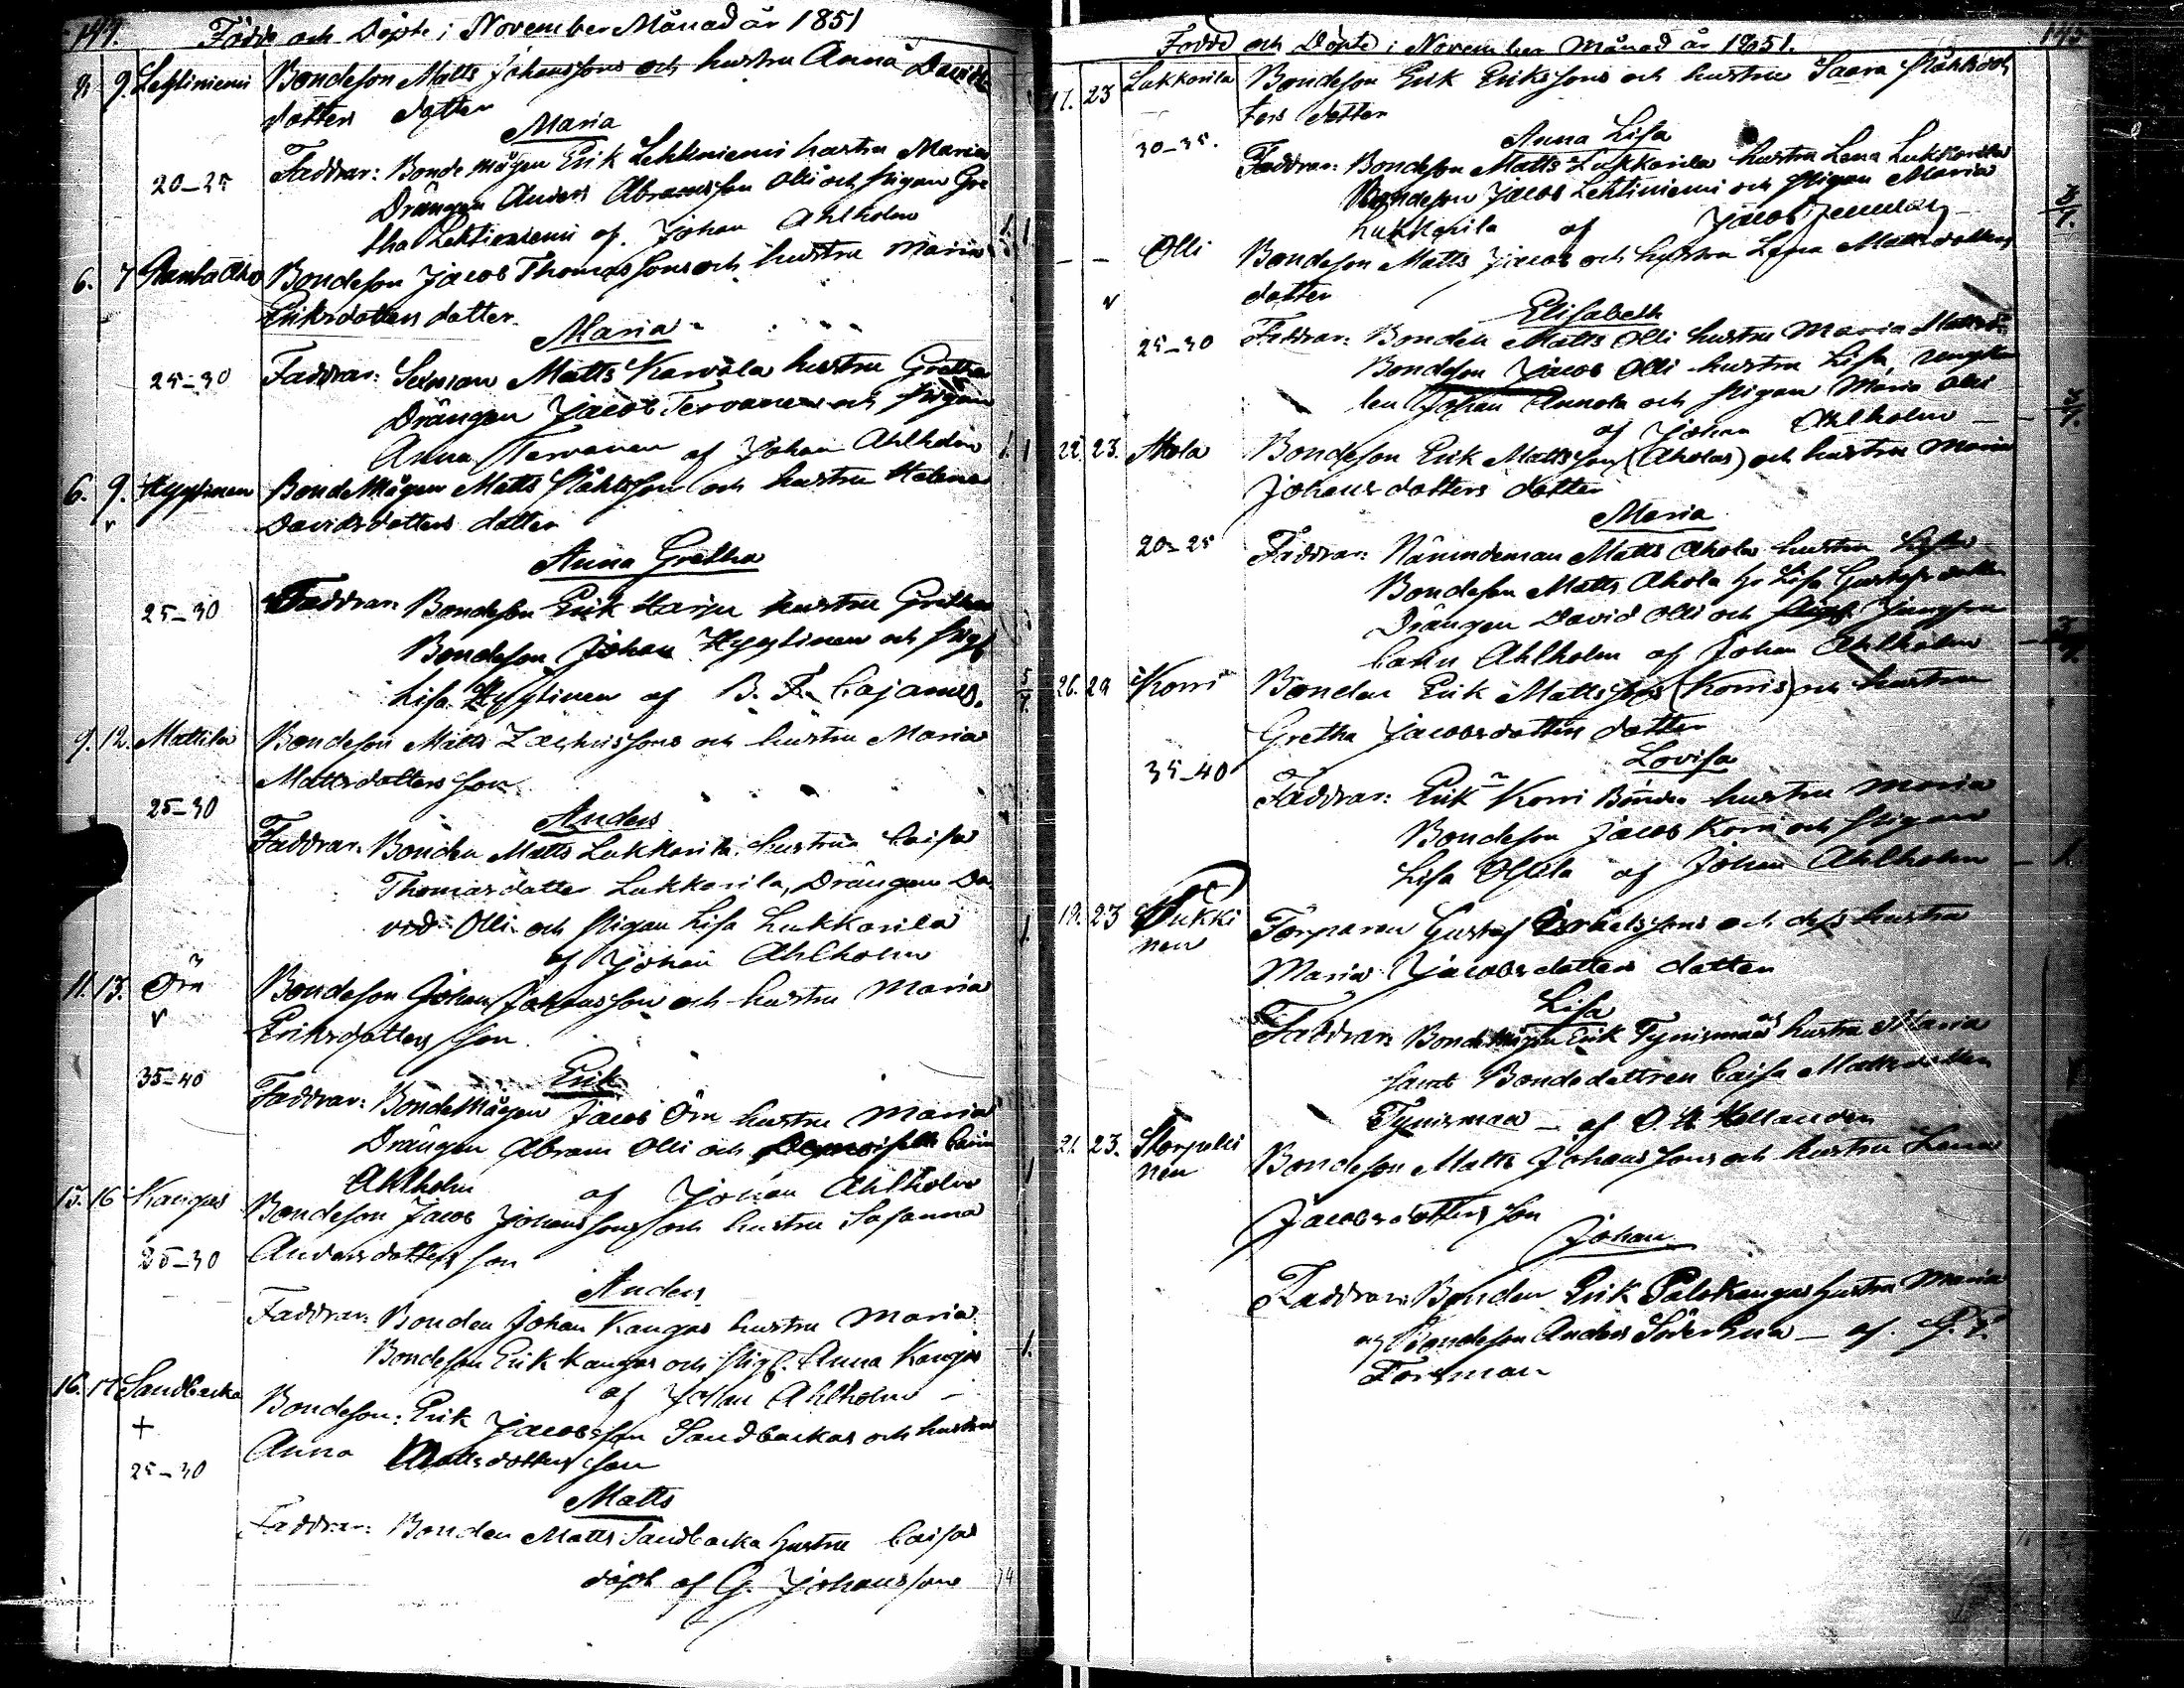 Födde och Döpte i November Månad år 1851
9. Lehtiniemi Bondeson Matts Johanssons och hustru Anna Davids
dotters dotter
Maria
20-25 Faddrar: Bonde Mågen Erik Lehtiniemi hustru Maria
Drängen Anders Abramsson Olli och Pigan Gre
tha Lehtiniemi af Johan Ahlholm 1.
6. 7 Bondeson Jacob Thomassons och hustru Maria
Eriksdotters dotter
Maria
25-30 Faddrar: Matts Karvala hustru Gretha
Drängen Jacob Tervanen och Pigan
Anna Tervanen af Johan Ahlholm 1.
6. 9. Hyytinen BondeMågen Matts och hustru Helena
Davidsdotters dotter
Anna Gretha
25-30 Faddrar: Bondeson Erik Harju hustru Gretha
Bondeson Johan Hyytinen och Pig.
Lisa Hyytinen af B. F. Cajanus.
9. 12. Mattila Bondeson Matts Zachrissons och hustru Maria
Mattsdotters son
25-30 Anders
Faddrar: Bonden Matts Lukkarila hustru Caisa
Thomasdotter Lukkarila, Drängen Da
vid Olli och Pigan Lisa Lukkarila
af Johan Ahlholm 1.
11. 13. Örn Bondeson Johan Johansson och hustru Maria
Eriksdotters son
35-40 Erik
Faddrar: BondeMågen Jacob Örn hustru Maria
Drängen Abram Olli och
Ahlholm af Johan Ahlholm
15. 16 Kangas Bondeson Jacob Johanssons och hustru Susanna
25-30 Andersdotters son
Anders
Faddrar: Bonden Johan Kangas hustru Maria
Bondeson Erik Kangas och Pig. Anna Kangas 1.
af Johan Ahlholm
16. 17 Sandbacka Bondeson: Erik Jacobsson Sandbackas och hustru
+ Anna Mattsdotters son
25-30 Matts
Faddrar: Bonden Matts Sandbacka hustru Caisa
döpt af G. Johansson
Födde och Döpte i November Månad år 1851.
17. 23 Lukkarila Bondeson Erik Erikssons och hustru Saara
ters dotter
30-35. Anna Lisa
Faddrar: Bondeson Matts Lukkarila hustru Lena Lukkarila
Bondeson Jacob Lehtiniemi och Pigan Maria
Lukkarila af Jacob
– – Olli Bondeson Matts Jacobs och hustru Lena Mattsdotters
dotter
Elisabeth
25-30 Faddrar: Bonden Matts Olli hustru Maria
Bondeson Jacob Olli hustru Lisa,
len Johan Annola och Pigan Maria Olli
af Johan Ahlholm
22. 23. Ahola Bondeson Erik Mattsson (Aholas) och hustru Maria
Johansdotters dotter
Maria
20-25 Faddrar: Nämndeman Matts Ahola hustru Lisa
Bondeson Matts Ahola h. Lisa Gustafsdotter
Drängen David Olli och Jungfru
Carin Ahlholm af Johan Ahlholm
26. 29 Korri Bonden Erik Mattssons (Korris) och hustru
Gretha Jacobsdotters dotter
35-40 Lovisa
Faddrar: Erik Korri Bonden hustru Maria
Bondeson Jacob Korri och Pigan
Lisa af Johan Ahlholm – 1
19. 23 Torparen Gustaf och dess hustru
nen
Maria Jacobsdotters dotter
Lisa
Faddrar: BondeMågen Erik Tynismaa och hustru Maria
samt Bondedottren Caisa Mattsdotter
Tynismaa – af O. H. Hellanden
21. 23. Bondeson Matts Johanssons och hustru Lena
nen
Jacobsdotters son
Johan
Faddrar: Bonden Erik Palokangas hustru Maria
och Bondeson Anders – af
Forsman